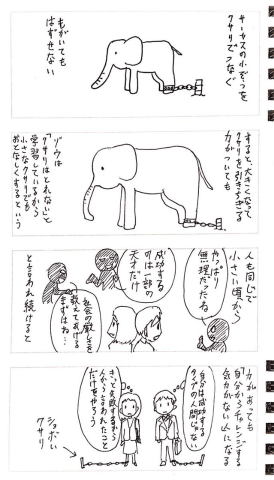 サーカスの小ぞうを
クサリでつなぐ
もがいても
はずせない
すると、大きくなって
クサリを引きちぎる
力がついても
「ゾウは
クサリはとれない」と
学習しているから
小さなクサリでも
おとなしくするという
人も同じで
小さい頃から
やっぱり
無理だったね
成功する
のは一部の
天才だけ
社会の厳しさを
教えてあげる
まずはね…
と言われ続けると
力があっても
「自分からチャレンジする
気力がない人」になる
自分は成功する
タイプの人間じゃない
きっと失敗するから
人から言われたこと
だけをやろう
ショボい
クサリ